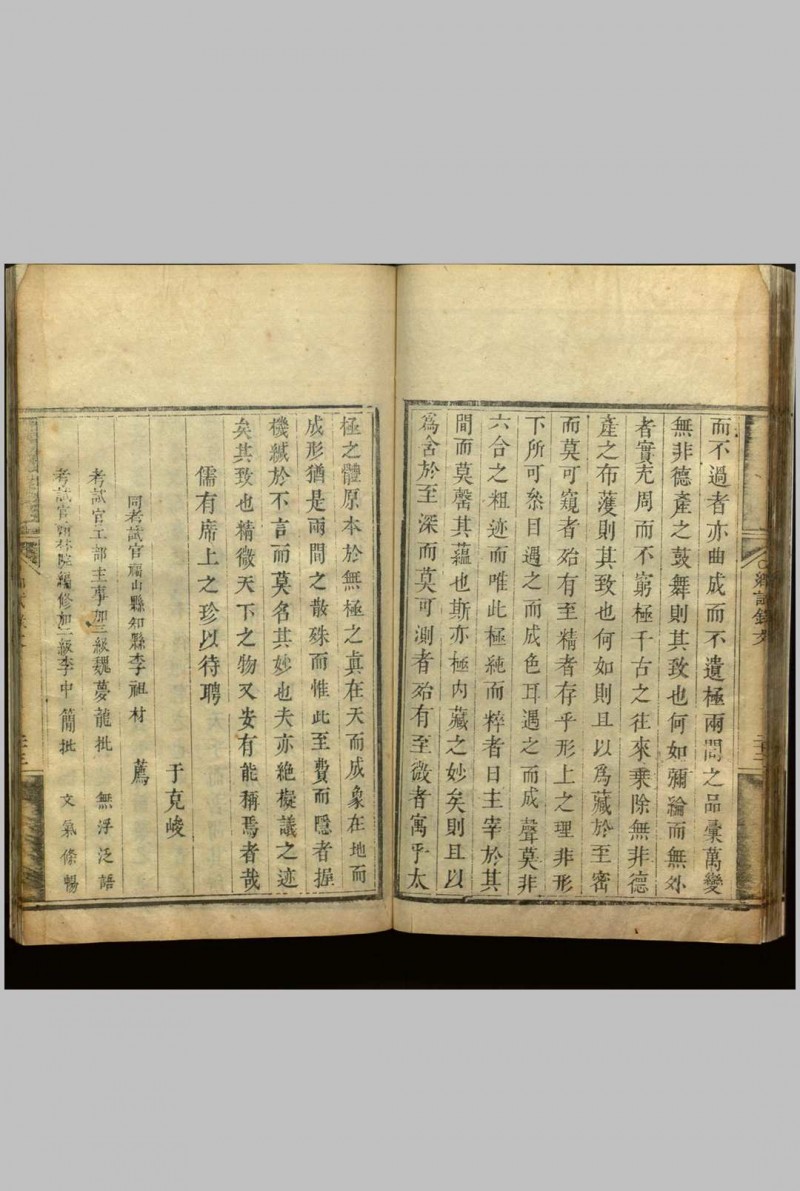 而不過者亦曲成而不遺極兩間之品彙萬變
無非德產之鼓舞則其致也何如彌綸而無外
者實充周而不窮極千古之往來乘除無非德
產之布濩則其致也何如則且以為藏於至密
而莫可窺者殆有至精者存乎形上之理非形
下所可叅目遇之而成色耳遇之而成聲莫非
六合之粗迹而唯此極純而粹者日主宰於其
間而莫罄其蘊也斯亦極內藏之妙矣則且以
爲舍於至深而莫可測者殆有至微者寓乎太
極之體原本於無極之眞在天而成象在地而
成形猶是兩間之散殊而惟此至費而隱者握
機緘於不言而莫名其妙也夫亦絶擬議之迹
矣其致也精微天下之物又安有能稱焉者哉
儒有席上之珍以待聘
于克峻
同考試官 山縣知縣李祖材 薦
考試官工部主事加三級魏夢龍批 無浮泛語
考試官翰林院編修加二級李中簡批 文氣條暢
鄉試錄文